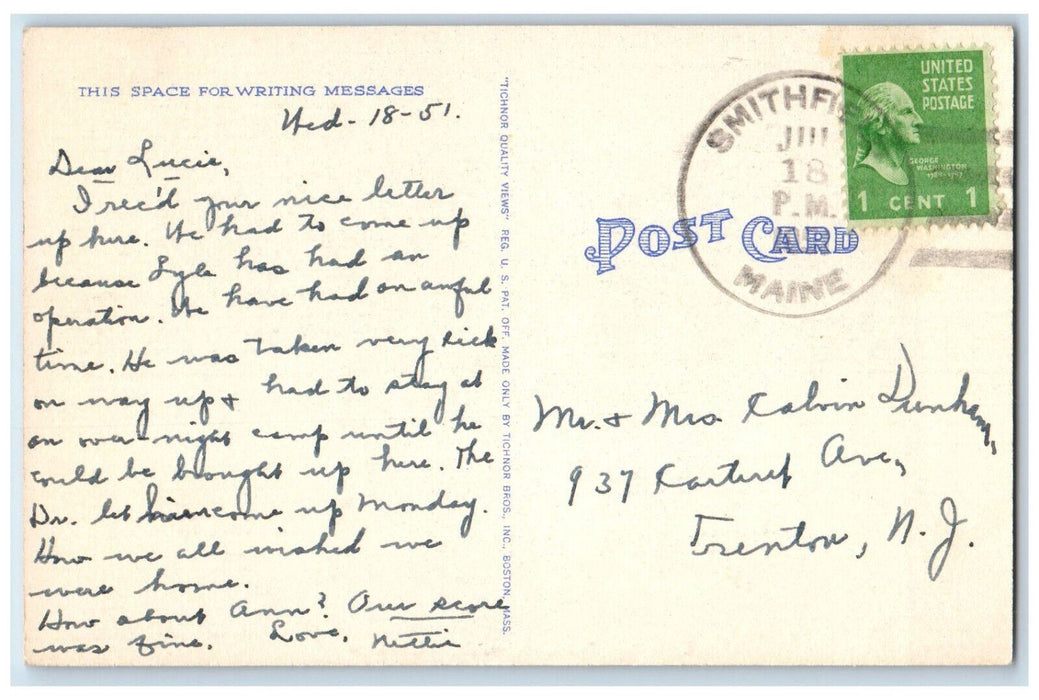 THIS SPACE FOR WRITING MESSAGES
Wed- 18-51.
Dear Lucie,
I rec'd your nice letter
up here. We had to come up
because Lyle has had an
operation. We have had an awful
time. He was taken very sick
on way up & had to stay at
an over-night camp until he
could be brought up here. The
Dr. let him come up Monday.
How we all wished we
were home.
How about Ann? Our score
was fine. Love, Nettie
"TICHNOR QUALITY VIEWS" REG. U. S. PAT. OFF. MADE ONLY BY TICHNOR BROS., INC., BOSTON, MASS.
SMITHFI
18
P.M.
MAINE
UNITED
STATES
POSTAGE
GEORGE
WASHINGTON
1 CENT 1
POST CARD
Mr. & Mrs. Calvin Dunham,
937 Carteret Ave,
Trenton, N. J.